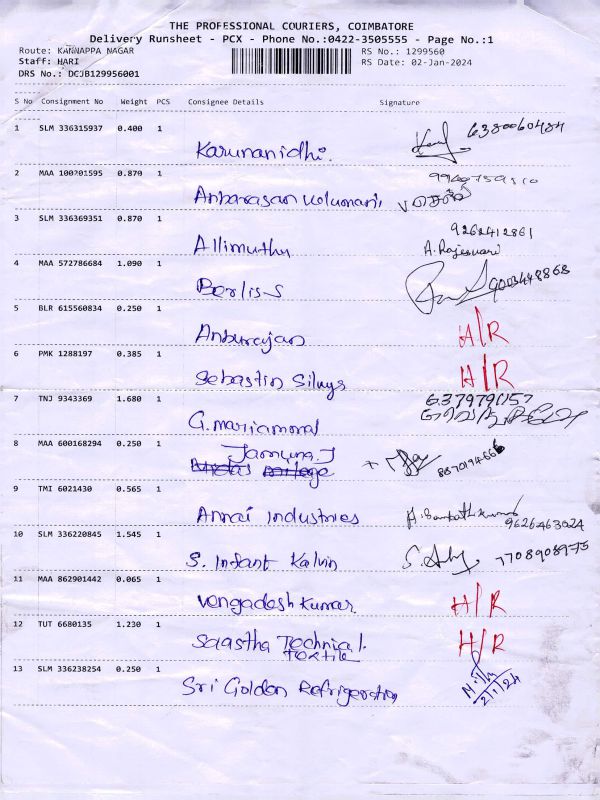 THE PROFESSIONAL COURIERS, COIMBATORE
Delivery Runsheet - PCX - Phone No.:0422-3505555 - Page No.:1
Route: KANNAPPA NAGAR RS No.: 1299560
Staff: HARI RS Date: 02-Jan-2024
DRS No.: DCJB129956001
S No Consignment No Weight PCS Consignee Details Signature
1 SLM 336315937 0.400 1
Karunanidhi. 6380060484
2 MAA 100701595 0.870 1
Anbarasan
3 SLM 336369351 0.870 1 9262412861
Allimuthu A. Rajeswari
4 MAA 572786684 1.090 1
Berlis-S 9003448868
5 BLR 615560834 0.250 1
Anburajan H/R
6 PMK 1288197 0.385 1
Sebastin Siluys H/R
7 TNJ 9343369 1.680 1 6379791157
G. Mariammal
8 MAA 600168294 0.250 1
Jamuna.J
9 TMI 6021430 0.565 1
Annai Industries 9626463024
10 SLM 336220845 1.545 1
S. Infant Kalvin 7708908975
11 MAA 862901442 0.065 1
Vengadesh Kumar H/R
12 TUT 6680135 1.230 1
Saastha Technical H/R
Textile
13 SLM 336238254 0.250 1
Sri Golden Refrigeration 2/1/24